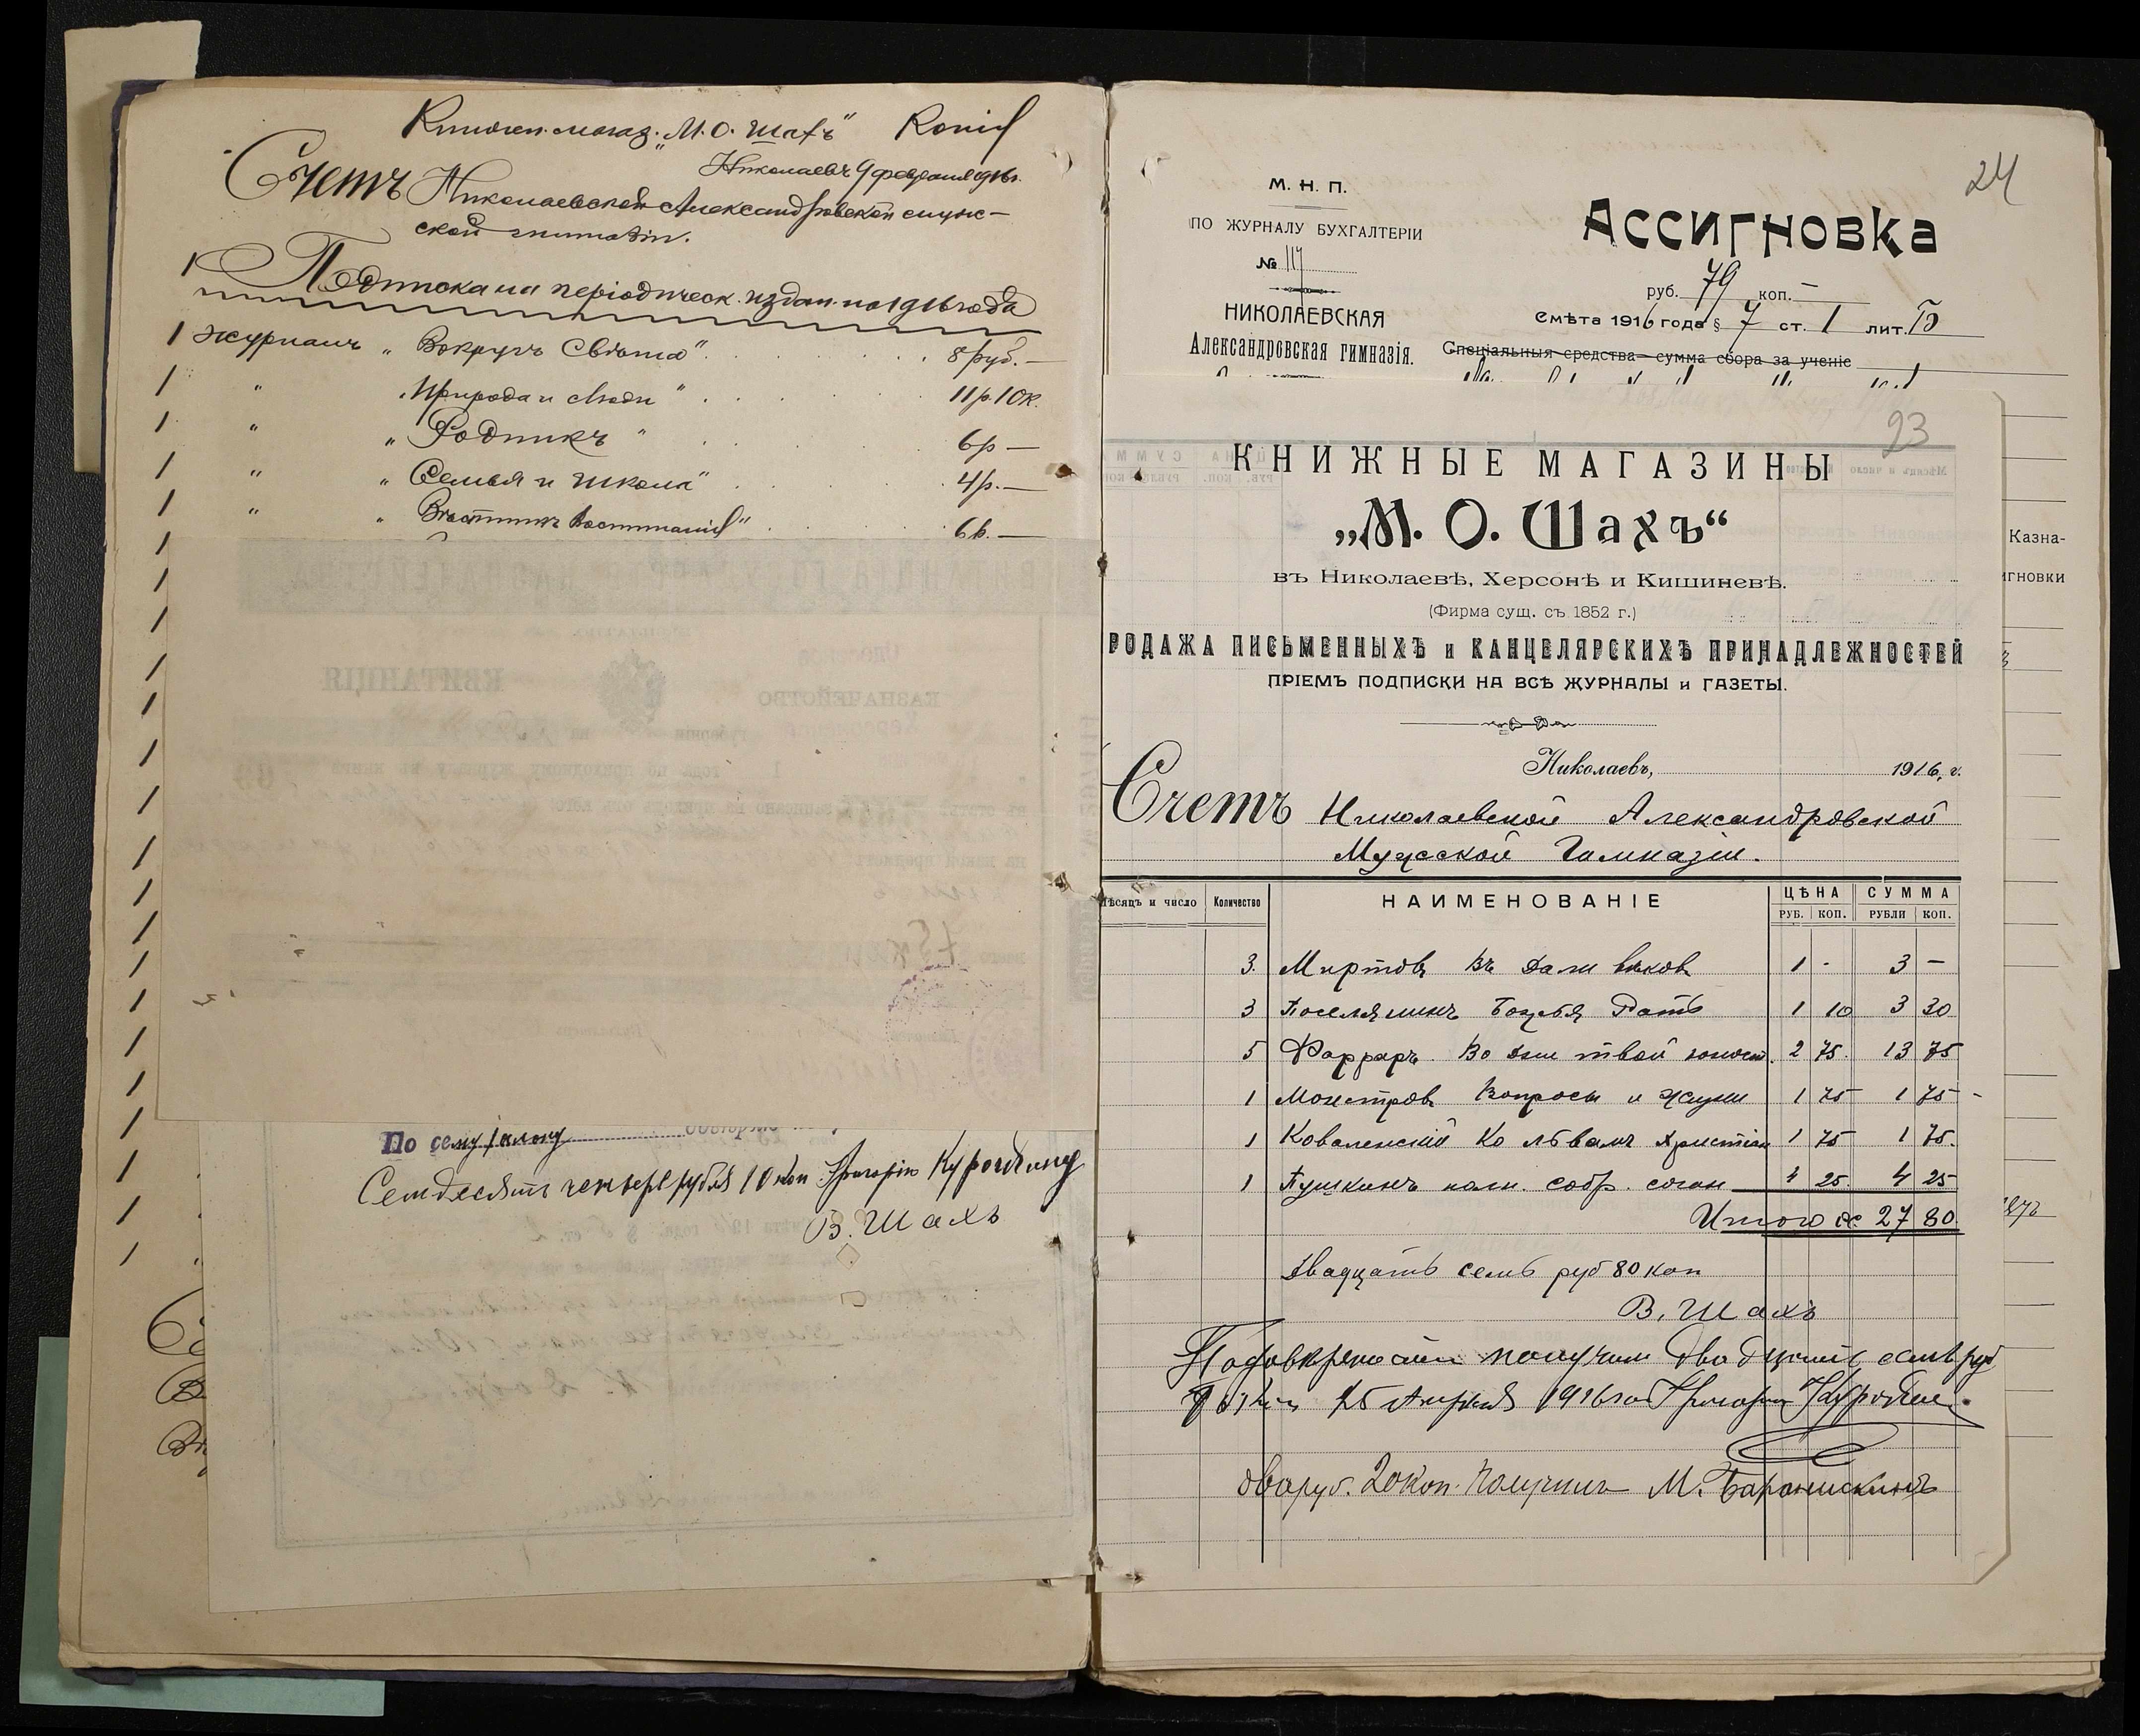 Книжен. магаз. „М. О. Шахъ" Копія
Николаевъ 9 февраля 1916 г.
Счетъ Николаевской Александровской муж-
ской гимназіи.
Подписка на періодическ. издан. на 1916 года
1 журналъ „Вокругъ Свѣта" 8 руб. —
1 " „Природа и Люди" 11 р. 10 к.
1 " „Родникъ" 6 р —
1 " „Семья и Школа" 4 р. —
1 " „Вѣстникъ Воспитанія" 6 р. —
КВИТАНЦІЯ
КАЗНАЧЕЙСТВО
По сему
Семдесятъ четыре рубля 10 коп Григорію
В. Шахъ
24
М. Н. П.
ПО ЖУРНАЛУ БУХГАЛТЕРІИ
№ 114
НИКОЛАЕВСКАЯ
Александровская гимназія.
Ассигновка
руб. 79 коп. —
Смѣта 1916 года § 7 ст. 1 лит. Б
Спеціальныя средства – сумма сбора за ученіе
Казна-
игновки
93
КНИЖНЫЕ МАГАЗИНЫ
„М. О. Шахъ“
въ Николаевѣ, Херсонѣ и Кишиневѣ.
(Фирма сущ. съ 1852 г.)
РОДАЖА ПИСЬМЕННЫХЪ и КАНЦЕЛЯРСКИХЪ ПРИНАДЛЕЖНОСТЕЙ
ПРІЕМЪ ПОДПИСКИ НА ВСѢ ЖУРНАЛЫ и ГАЗЕТЫ.
Николаевъ, 1916, г.
Счетъ Николаевской Александровской
Мужской Гимназіи.
Мѣсяцъ и число Количество НАИМЕНОВАНІЕ ЦѢНА СУММА
РУБ. КОП. РУБЛИ КОП.
3. Миртовъ Въ дали вѣковъ 1 - 3 —
3 Поселянинъ Божья Рать 1 10 3 30
5 Фарраръ. Во дни твоей юност. 2 75. 13 75
1 Монстровъ Вопросы и жизни 1 75 1 75 -
1 Коваленскій Ко львамъ христіан 1 75 1 75.
1 Пушкинъ полн. собр. сочин 4 25. 4 25
Итого 27 80
Двадцать семь руб 80 коп
В. Шахъ
По довѣренности получилъ двадцать семь руб
80 коп 15 Апреля 1916 го Григорій
два руб. 20 коп. получилъ М.